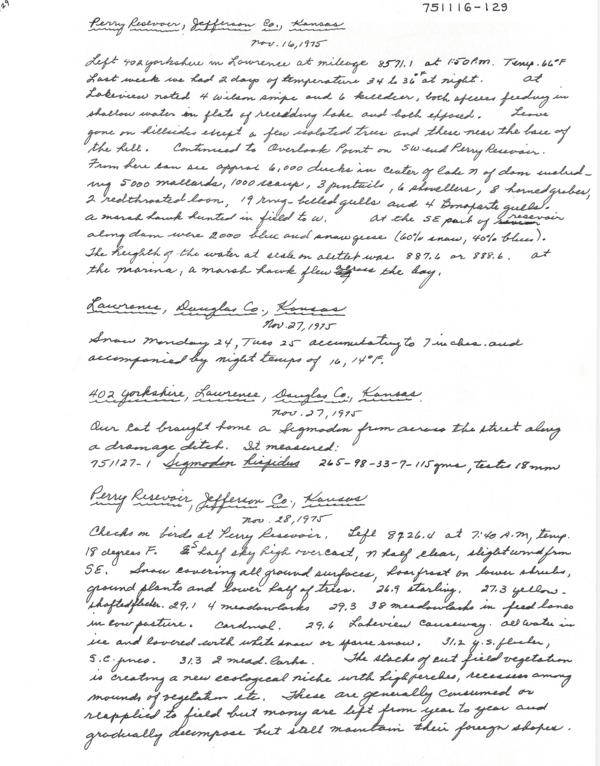 751116-129
129
Perry Resevoir, Jefferson Co., Kansas
Nov. 16, 1975
Left 402 Yorkshire in Lawrence at mileage 8571.1 at 1:50 P.M. Temp. 66°F
Last week we had 2 days of temperature 34 to 36° at night. At
Lakeview noted 4 Wilson snipe and 6 killdeer, both species feeding in
shallow water in flats of receding lake and both exposed. Leave
gone on hillsides except a few isolated trees and these near the base of
the hill. Continued to Overlook Point on SW end Perry Resevoir.
From here can see approx 6,000 ducks in center of lake N of dam includ-
ing 5000 mallards, 1000 scaup, 3 pintails, 6 shovellers, 8 horned grebes,
2 redthroated loon, 19 ring-billed gulls and 4 bonaparte gulls.
A marsh hawk hunted in field to W. At the SE part of reservoir
along dam were 2000 blue and snow geese (60% snow, 40% blue).
The heighth of the water at scale on outlet was 887.6 or 888.6. At
the marina, a marsh hawk flew across the bay.
Lawrence, Douglas Co., Kansas
Nov. 27, 1975
Snow Monday 24, Tues 25 accumulating to 7 inches and
accompanied by night temps of 16, 14°F.
402 Yorkshire, Lawrence, Douglas Co., Kansas
Nov. 27, 1975
Our cat brought home a Sigmodon from across the street along
a drainage ditch. It measured:
751127-1 Sigmodon hispidus 265-98-33-7-115gms, testes 18mm
Perry Resevoir, Jefferson Co., Kansas
Nov. 28, 1975
Checks on birds at Perry Resevoir. Left 8926.4 at 7:40 A.M, temp.
18 degrees F. S half sky high overcast, N half clear, slight wind from
SE. Snow covering all ground surfaces, hoarfrost on lower shrubs,
ground plants and lower half of trees. 26.9 starling. 27.3 yellow-
shafted flicker. 29.1 4 meadowlarks 29.3 38 meadowlarks in feed lanes
in cow pasture. Cardinal. 29.6 Lakeview causeway. All water in
ice and covered with white snow or sparse snow. 31.2 y.s. flicker,
S.C. junco. 31.3 2 mead. larks. The stacks of cut field vegetation
is creating a new ecological niche with high perches, recesses among
mounds of vegetation etc. These are generally consumed or
reapplied to field but many are left from year to year and
gradually decompose but still maintain their foreign shapes.